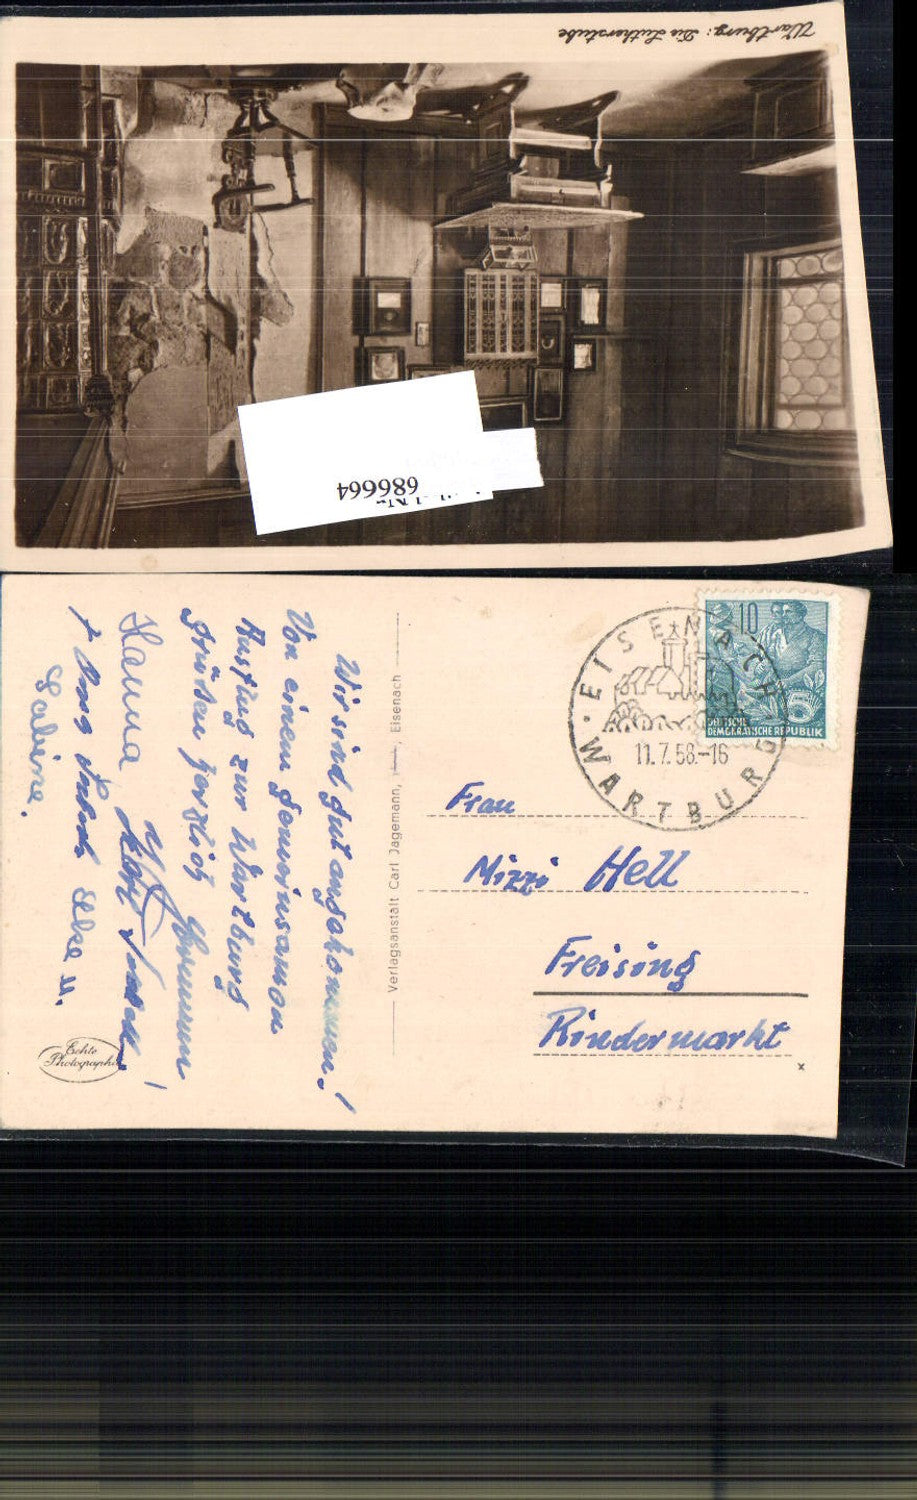 Wartburg: Die Lutherstube
686664
Wir sind gut angekommen!
Von einem gemeinsamen
Ausflug zur Wartburg
grüßen herzlich
Hanna
Elke u.
Sabine.
Echte
Photographie
Verlagsanstalt Carl Jagemann, Eisenach
EISENACH
WARTBURG
11.7.58.-16
10
5
DEUTSCHE
DEMOKRATISCHE REPUBLIK
Frau
Mizzi Hell
Freising
Rindermarkt
x